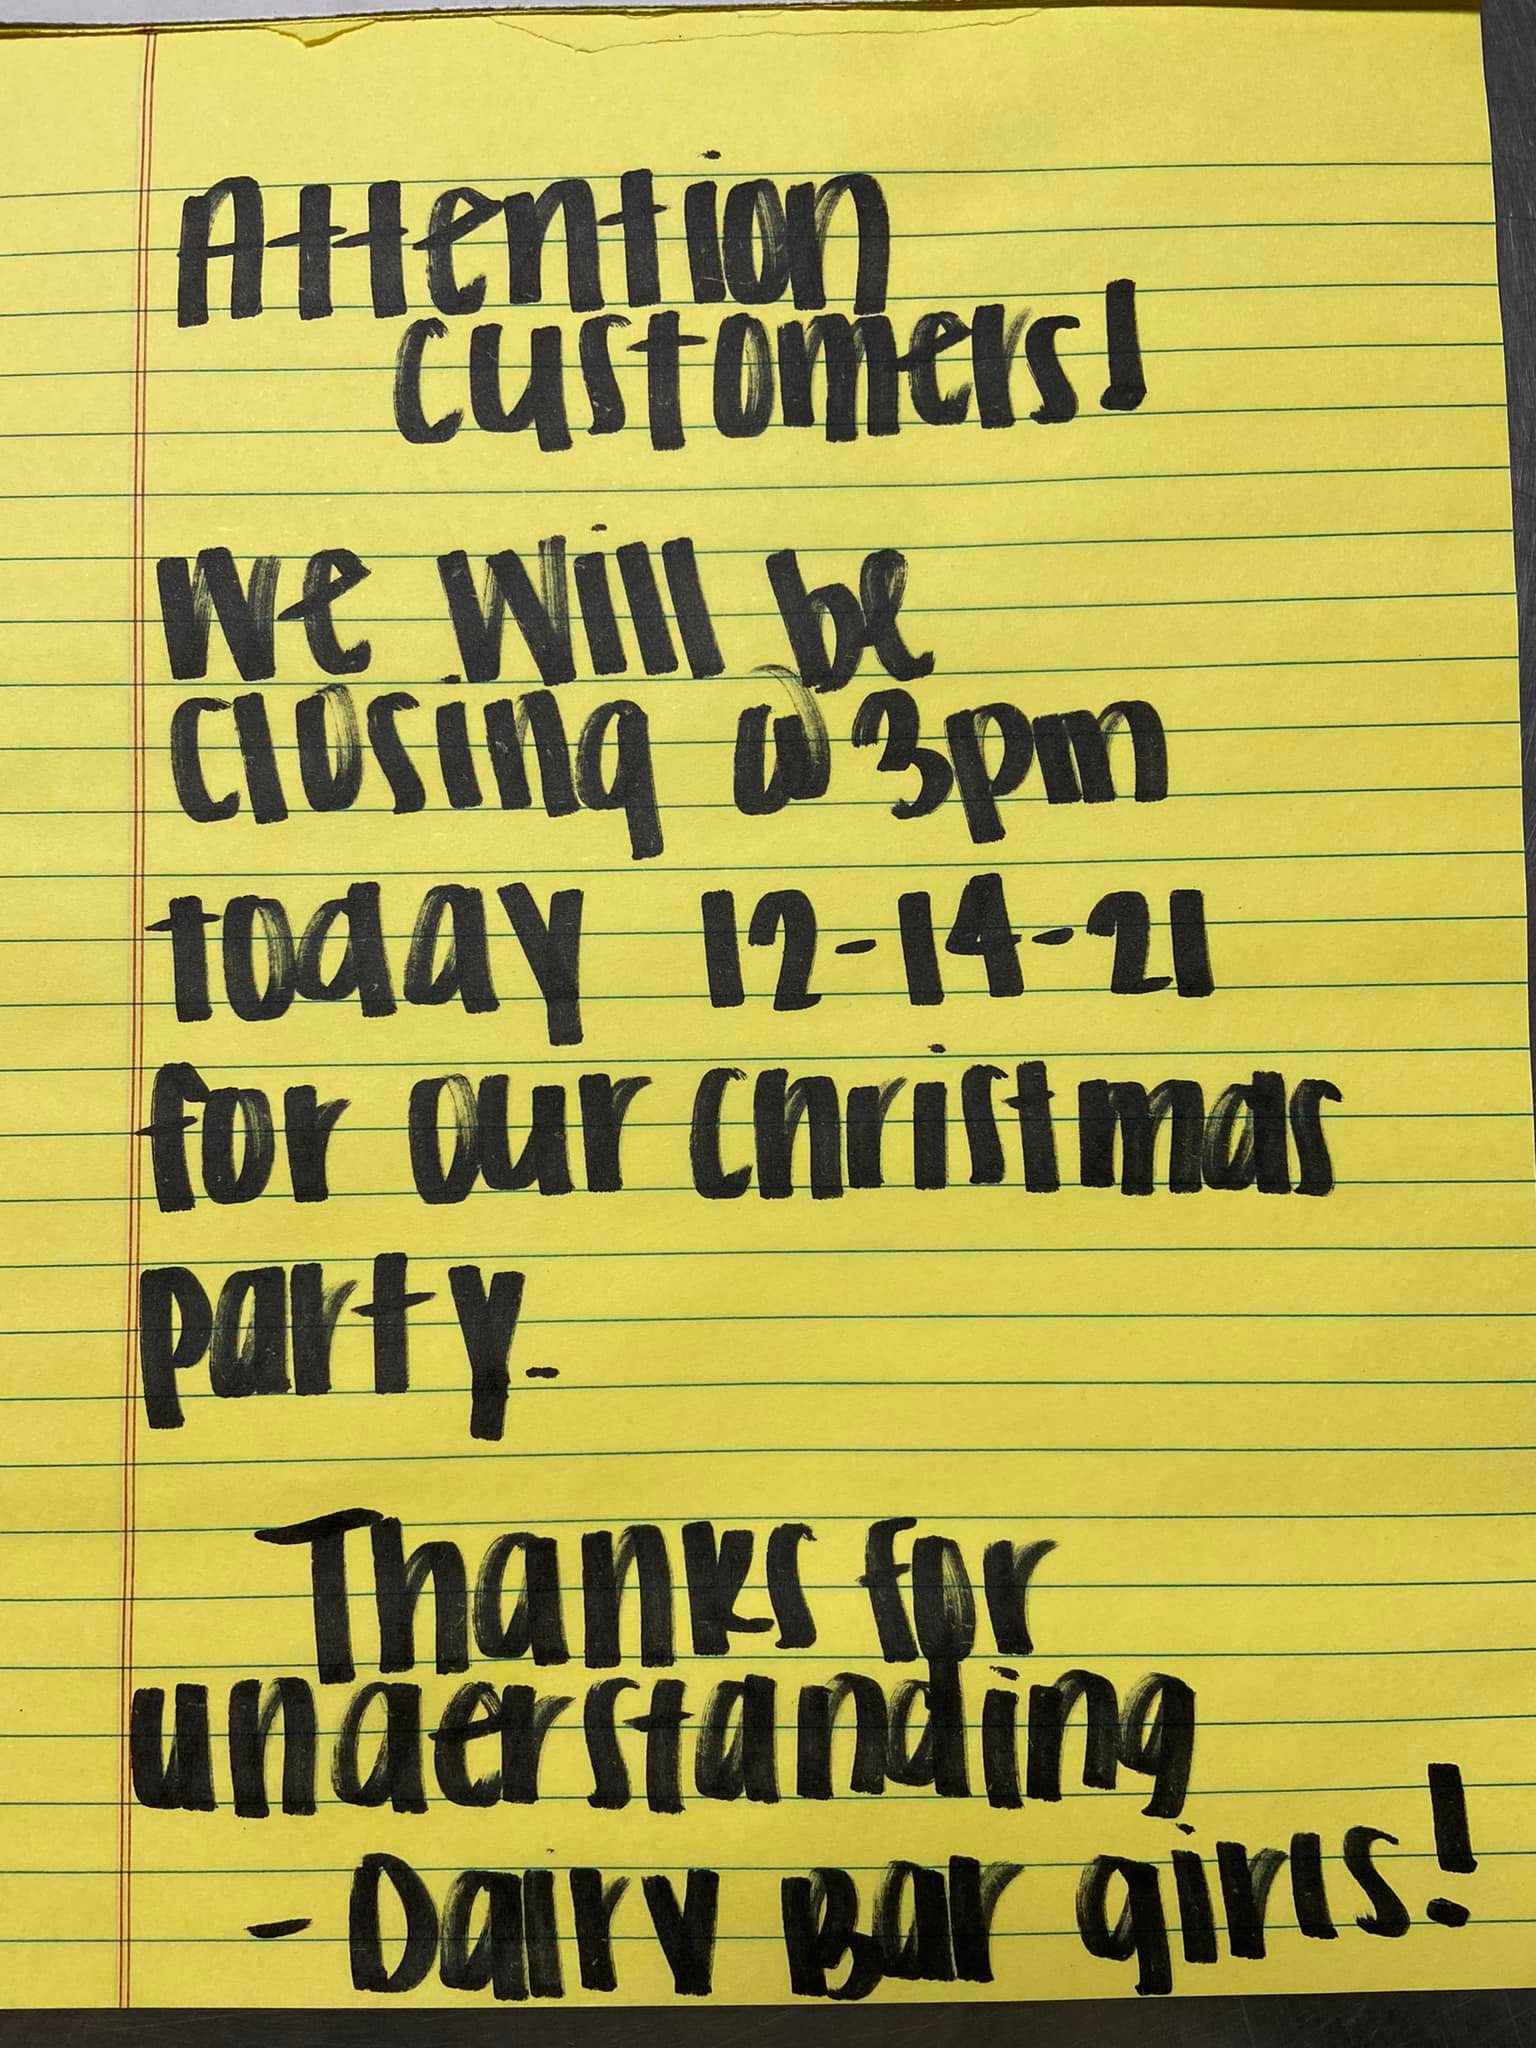 Attention
customers!
We Will be
closing @ 3pm
today 12-14-21
for our Christmas
party.
Thanks for
understanding
- Dairy Bar girls!